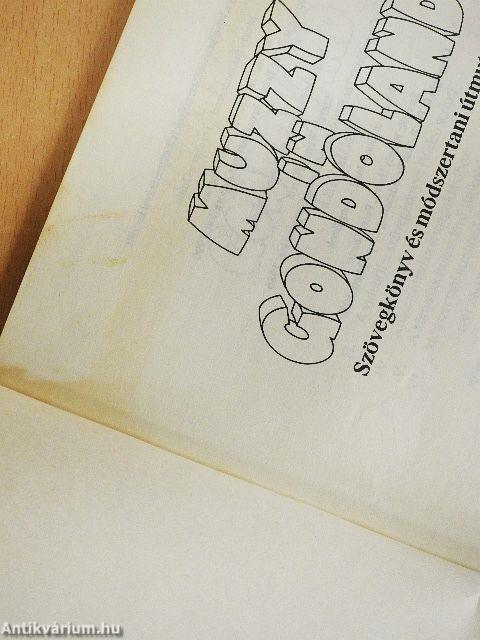 MUZZY
IN
GONDOLAND
Szövegkönyv és módszertani
Antikvárium.hu